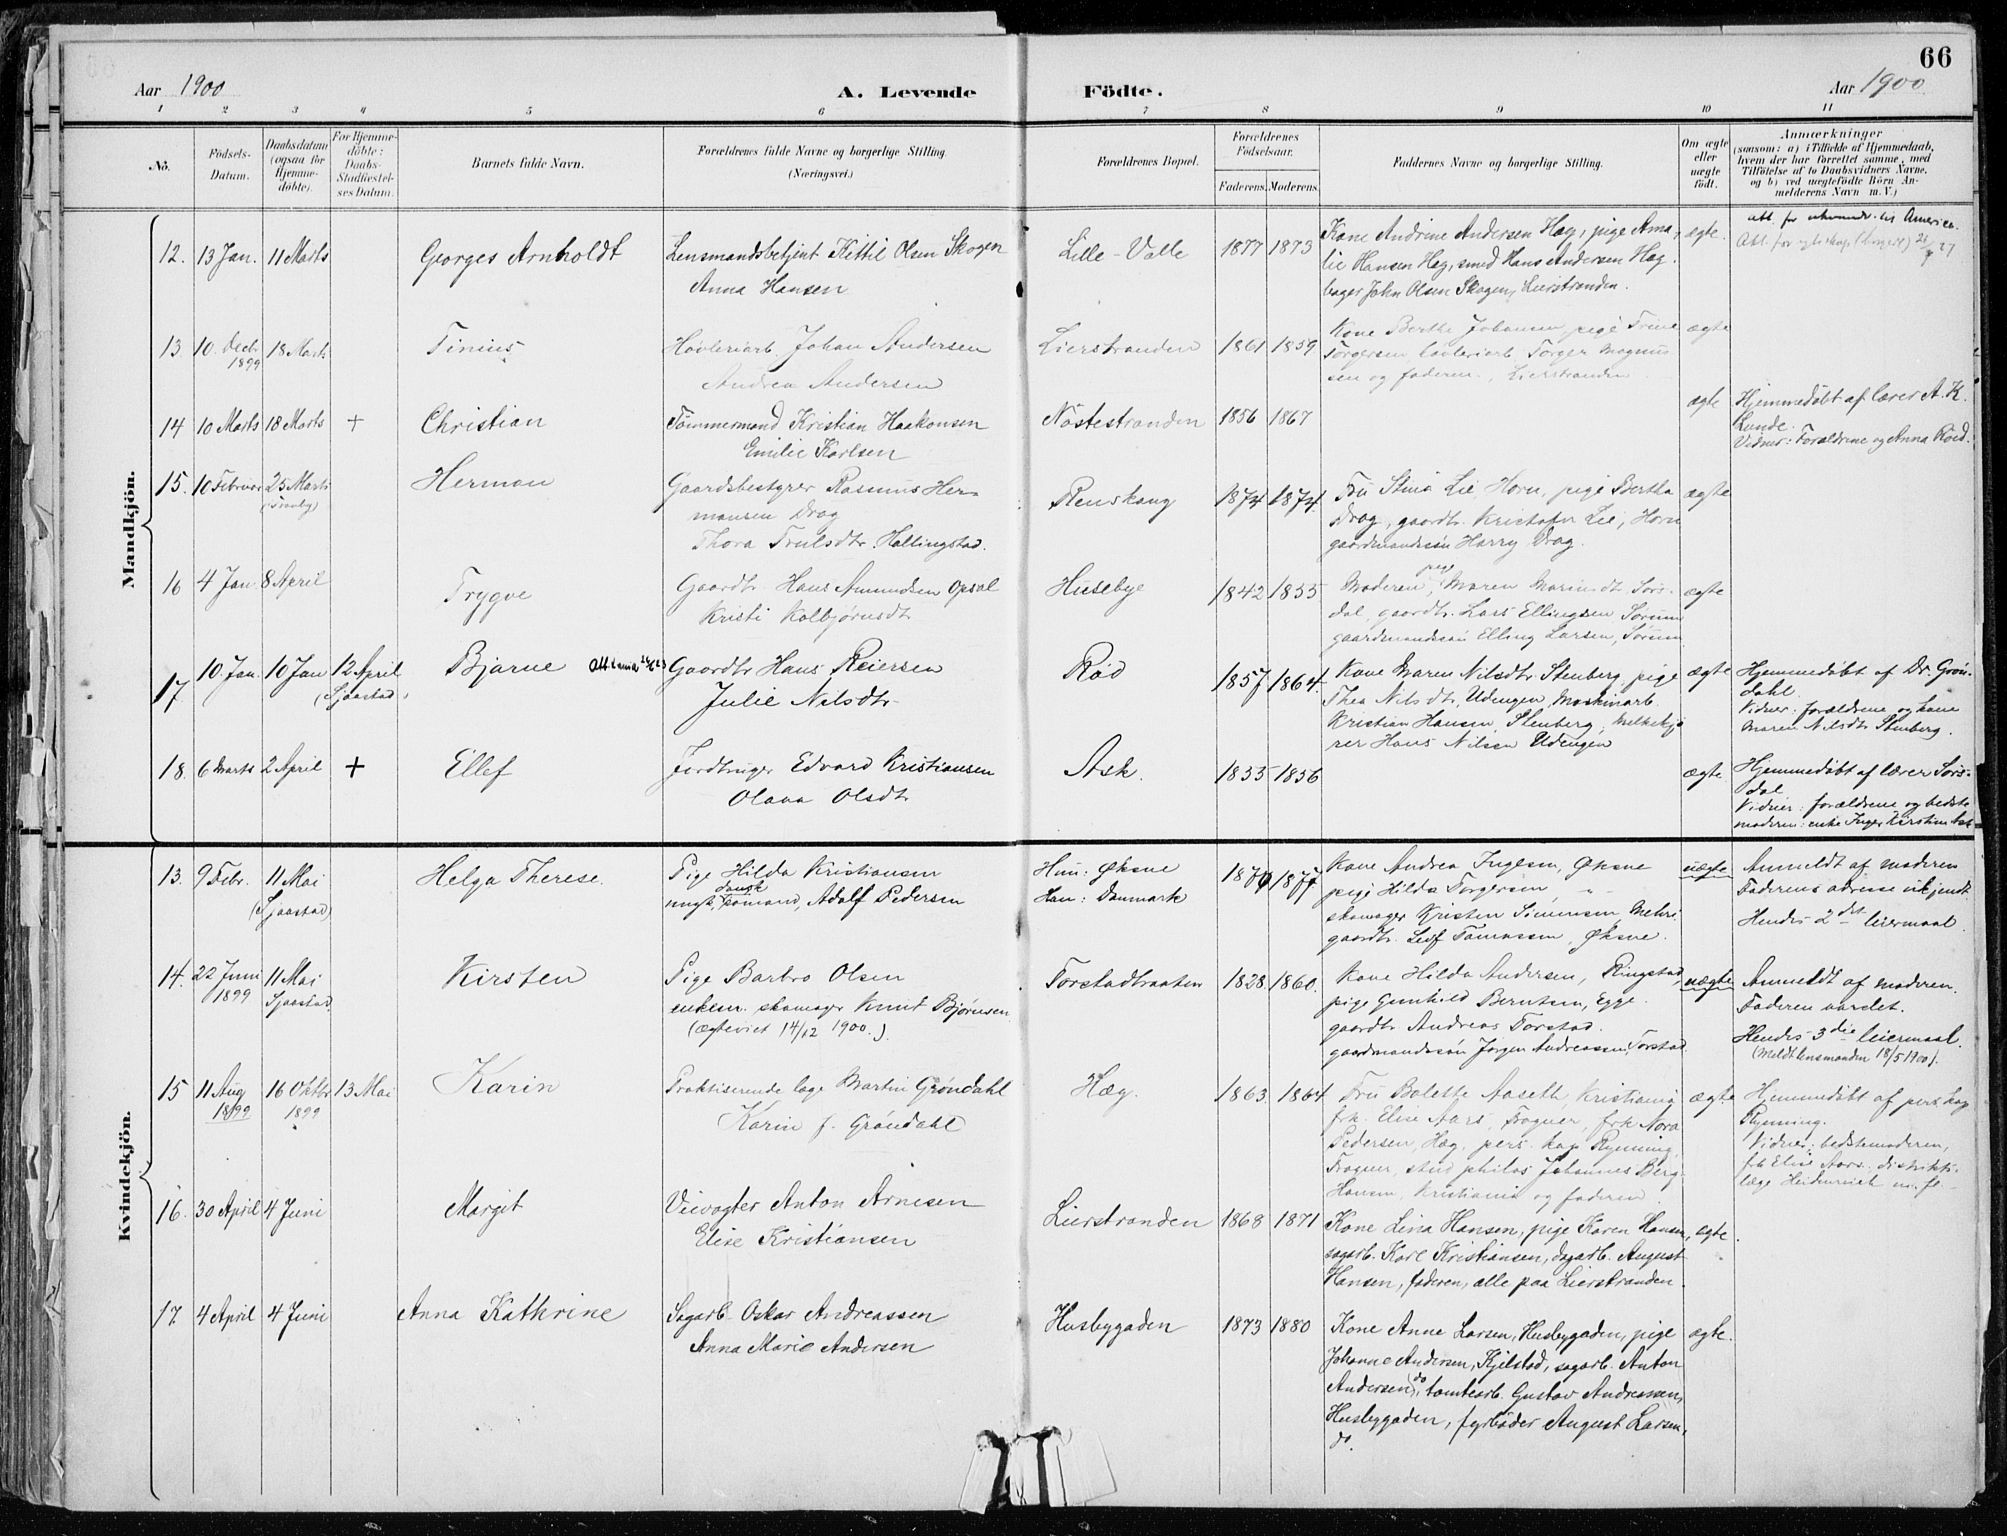 66
Aar 1900
A. Levende Födte.
Aar 1900
1 2 3 4 5 6 7 8 9 10 11
No.
Födsels-
Datum.
Daabsdatum
(ogsaa for
Hjemme-
döbte).
For Hjemme-
döbte:
Daabs-
Stadfæstel-
ses Datum.
Barnets fulde Navn.
Forældrenes fulde Navne og borgerlige Stilling.
(Næringsvei.)
Forældrenes Bopæl.
Forældrenes
Födselsaar.
Faderens. Moderens.
Faddernes Navne og borgerlige Stilling.
Om ægte
eller
uægte
født.
Anmærkninger
(saasom: a) i Tilfælde af Hjemmedaab,
hvem der har forrettet samme, med
Tilföielse af to Daabsvidners Navne,
og b) ved uægtefödte Börn An-
melderens Navn m. V.)
Mandkjön.
12. 13 Jan. 11 Marts Georges Arnholdt
Lensmandsbetjent Kittil Olsen Skogen
Anna Hansen
Lille-Valle 1877 1873
Kone Andrine Andersen Hæg, pige Ama-
lie Hansen Hæg, smed Hans Andersen Hæg.
bager John Olsen Skogen, Lierstranden.
ægte.
att. for America.
13. 10. Decbr. 1899 18 Marts Tinius
Høvleriarb. Johan Andersen
Andrea Andersen
Lierstranden 1861 1859
Kone Berthe Johansen, pige Trine
Torgersen, høvleriarb. Torger Magnus
sen og faderen, Lierstranden
ægte
14 10 Marts 18 Marts + Christian
Tömmermand Kristian Haakonsen
Emilie Karlsen
Nöstestranden 1856 1867
ægte
Hjemmedöbt af lærer A. K.
Lunde.
Vidner: Forældrene og Anna Röed.
15. 10 Februar 25 Marts (Tranby) Herman
Gaardsbestyrer Rasmus Her-
mansen Drag
Thora Trulsdtr. Hallingstad.
Renskaug 1874 1874.
Fru Stina Lie, Horn, pige Bertha
Drag, gaardbr. Kristofer Lie, Horn
gaardmandssön Harry Drag.
ægte
16 4 Jan. 8 April Trygve
Gaardbr. Hans Amundsen Opsal
Kristi Kolbjørnsdtr
Husebye 1842 1855
Moderen, pige Maren Marinsdtr. Sørs-
dal, gaardbr. Lars Ellingsen Sørum
gaardmandssön Elling Larsen, Sørum
ægte
17 10 Jan. 10 Jan 12 April (Sjaastad) Bjarne
Gaardbr Hans Reiersen
Julie Nilsdtr.
Röd 1857 1864.
Kone Maren Nilsdtr. Stenberg, pige
Thea Nilsdtr, Udengen, Maskinarb.
Kristian Hansen, Stenberg, melkekjø
rer Hans Nilsen Udengen
ægte
Hjemmedöbt af Dr. Grön-
dahl.
Vidner: forældrene og kone
Maren Nilsdtr. Stenberg.
18. 6 Marts 2 April + Ellef
Jordbruger Edvard Kristiansen
Olava Olsdtr
Ask. 1855 1856
ægte
Hjemmedöbt af lærer Sørs-
dal
Vidner: forældrene og bedste
moderen: enke Inger Kirstine Ask
Kvindekjön.
13. 9 Febr. 11 Mai (Sjaastad) Helga Therese.
Pige Hilda Kristiansen
ungk. dansk sømand, Adolf Pedersen
Hun: Øksne
Han: Danmark
1877
Kone Andrea Inglesen, Øksne
pige Hilda Torgersen, "
skomager Kristen Simensen, Mehri
gaardbr. Leif Tomassen, Øksne.
uægte
Anmeldt af moderen
Faderens adresse ukjendt.
Hendes 2det leiermaal.
14. 22 Juni 1899 11 Mai Sjaastad Kirsten
Pige Barbro Olsen
enkem. skomager Knut Bjørnsen
(Ægteviet 14/12 1900.)
Torstadbraaten 1828 1860.
Kone Hilda Andersen, Ringstad,
pige Gunhild Berntsen, Egge.
gaardbr Andreas Torstad.
gaardmandssön Jørgen Andreassen, Torstad
uægte
Anmeldt af moderen.
Faderen vardet.
Hendes 3die leiermaal.
(Meldt lensmanden 18/5 1900).
15 11 Aug 1899 16 Oktbr 1899 13 Mai Karin
Praktiserende læge Martin Gröndahl
Karin f. Gröndahl
Hæg. 1863. 1864
Fru Bolette Aaseth, Kristiania
frk. Elise Aars, Frogner, frk Nora
Pedersen, Hæg, pers. kap Rynning,
Frogner, stud philos Johannes Berg-
Hansen, Kristiania og faderen
ægte
Hjemmedöbt af pers kap
Rynning.
Vidner: bedstemoderen,
frk Elise Aars, distrikts-
læge
16. 30 April 4 Juni Margit
Veivogter Anton Arnesen
Elise Kristiansen
Lierstranden 1868 1871
Kone Lina Hansen, pige Karen Hansen,
sagarb. Karl Kristiansen, dagarb. August
Hansen, faderen, alle paa Lierstranden.
ægte.
17. 4 April 4 Juni Anna Kathrine
Sagarb. Oskar Andreassen
Anna Marie Andersen
Husbygaden 1873 1880
Kone Anne Larsen, Husbygaden, pige
Johanne Andersen, Kjelstad, sagarb. Anton
Andersen, do, tomtearb. Gustav Andreassen,
Husbygaden, fyrböder August Larsen,
do.
ægte.